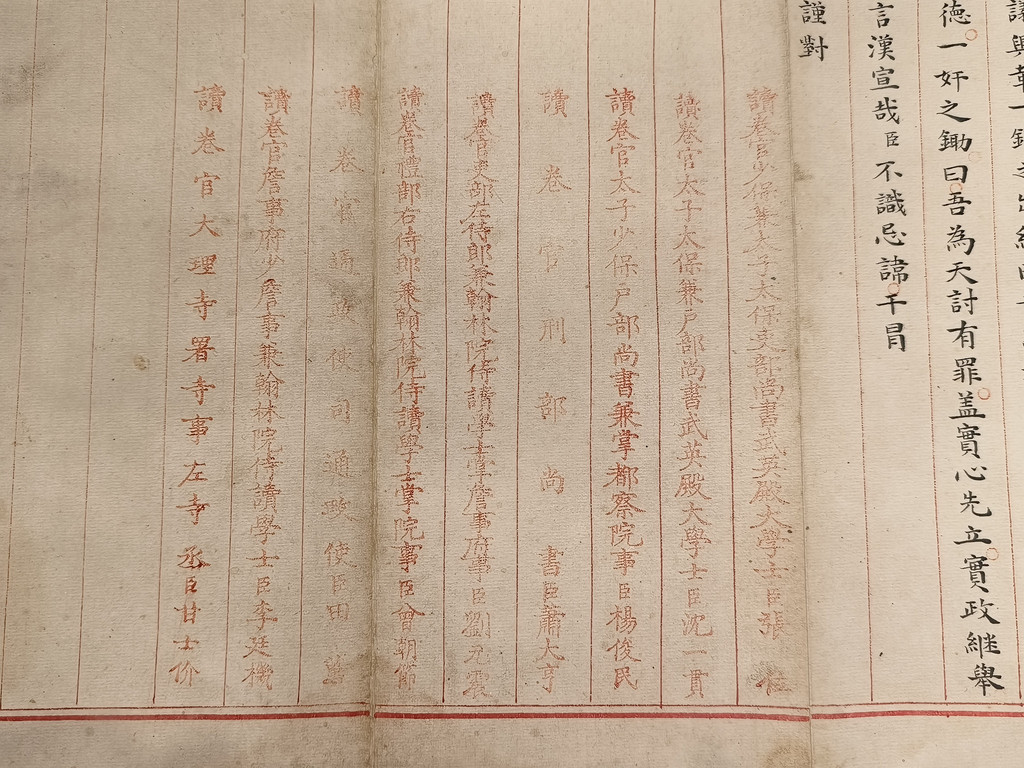 德一奸之鋤曰吾為天討有罪盖實心先立實政継舉
言漢宣哉臣不識忌諱干冒
謹對
讀卷官少保兼太子太保吏部尚書武英殿大學士臣張位
讀卷官太子太保兼戶部尚書武英殿大學士臣沈一貫
讀卷官太子少保戶部尚書兼掌都察院事臣楊俊民
讀卷官刑部尚書臣蕭大亨
讀卷官吏部左侍郎兼翰林院侍讀學士掌詹事府事臣劉元震
讀卷官禮部右侍郎兼翰林院侍讀學士掌院事臣曾朝節
讀卷官通政使司通政使臣田
讀卷官詹事府少詹事兼翰林院侍讀學士臣李廷機
讀卷官大理寺署寺事左寺丞臣甘士价